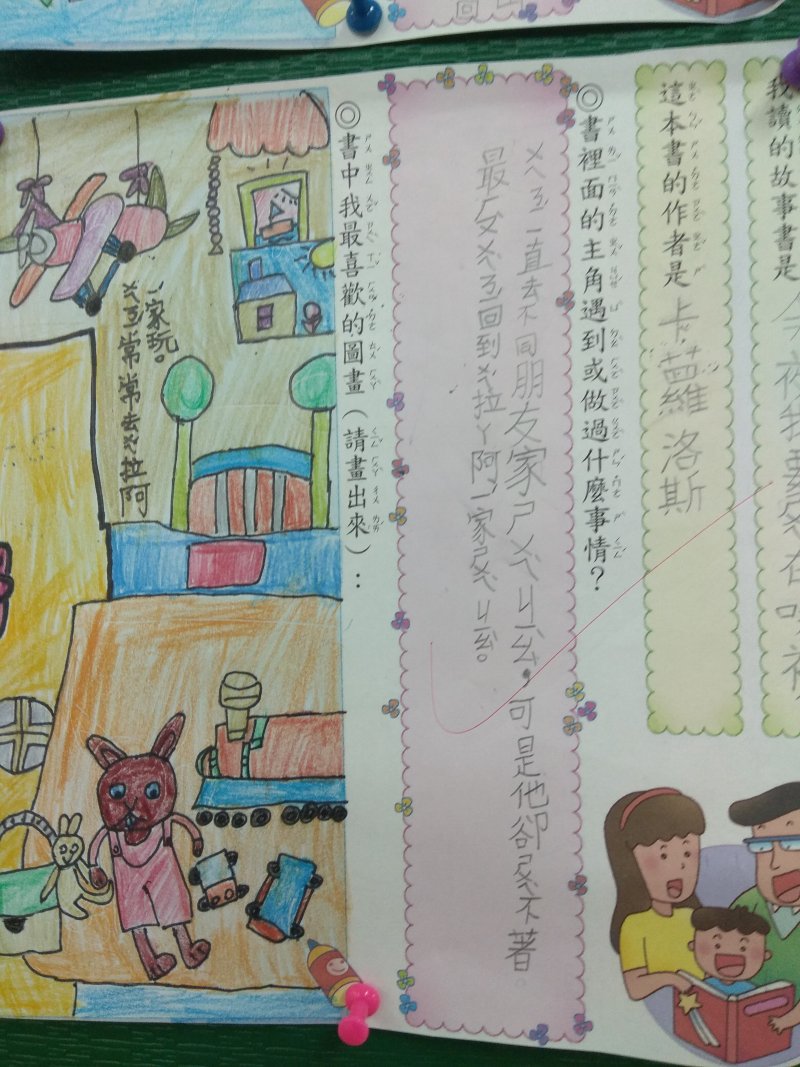 我讀的故事書是
今夜我要
這本書的作者是
卡蘿羅洛斯
◎書裡面的主角遇到或做過什麼事情？
ㄨㄢ一直去不同朋友家ㄕㄨㄟˋㄐㄧㄠˋ，可是他卻ㄕㄨㄟˋ不著。
最ㄏㄡˋㄨㄢ回到ㄨ拉ㄚ阿一家ㄕㄨㄟˋㄐㄧㄠˋ。
◎書中我最喜歡的圖畫（請畫出來）：
常常去ㄨ拉阿
一家玩。